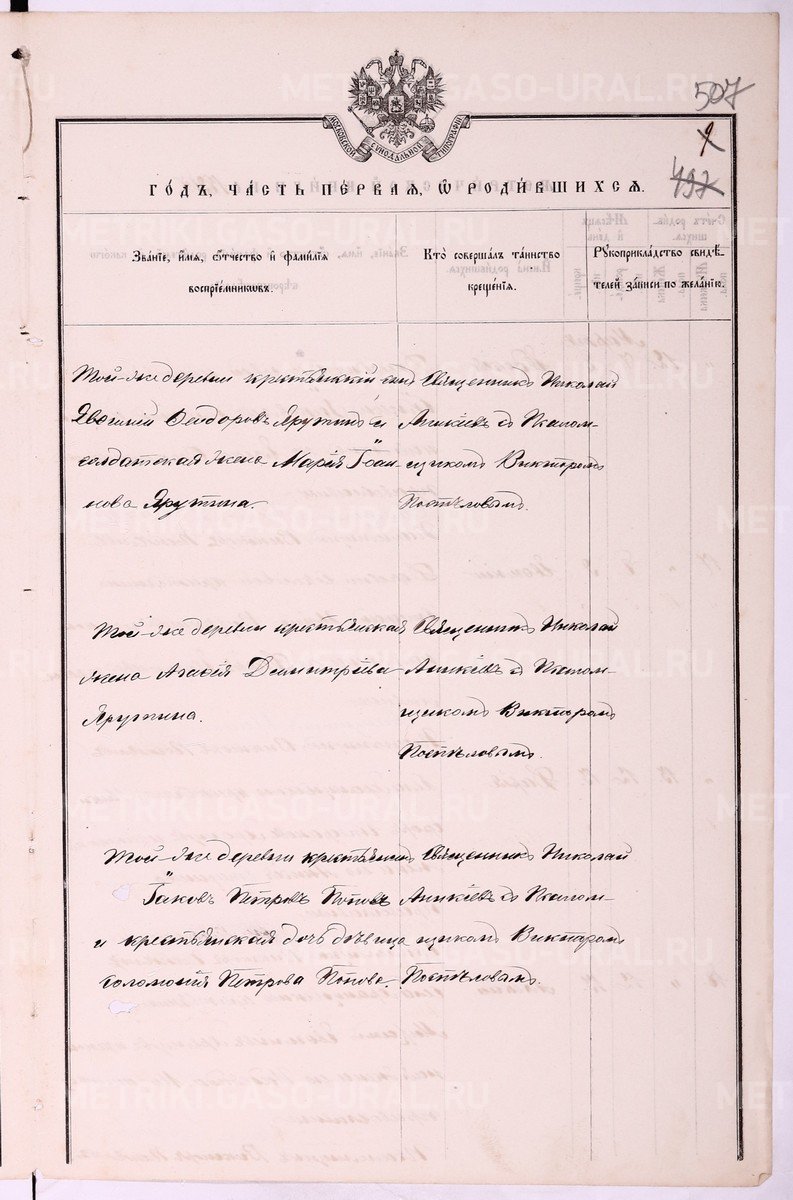 507
497
МОСКОВСКОЙ СѴНОДАЛЬНОЙ ТИПОГРАФІИ
ГОДЪ, ЧАСТЬ ПЕРВАЯ, Ѡ РОДИВШИХСЯ.
Званіе, имя, отчество и фамилія
воспріемниковъ.
Кто совершалъ таинство
крещенія.
Рукоприкладство свидѣ-
телей записи по желанію.
Той-же деревни крестьянскій сынъ
Евгений Феодоровъ Ярутинъ и
солдатская жена Марія Іоан-
нова Ярутина.
Священникъ Николай
Аникіевъ съ Псалом-
щикомъ Викторомъ
Поспѣловымъ.
Той-же деревни крестьянская
жена Агафія Димитріева
Ярутина.
Священникъ Николай
Аникіевъ съ Псалом-
щикомъ Викторомъ
Поспѣловымъ.
Той-же деревни крестьянинъ
Іаковъ Петровъ Поповъ
и крестьянская дочь дѣвица
Соломонія Петрова Попова.
Священникъ Николай
Аникіевъ съ Псалом-
щикомъ Викторомъ
Поспѣловымъ.
METRIKI.GASO-URAL.RU